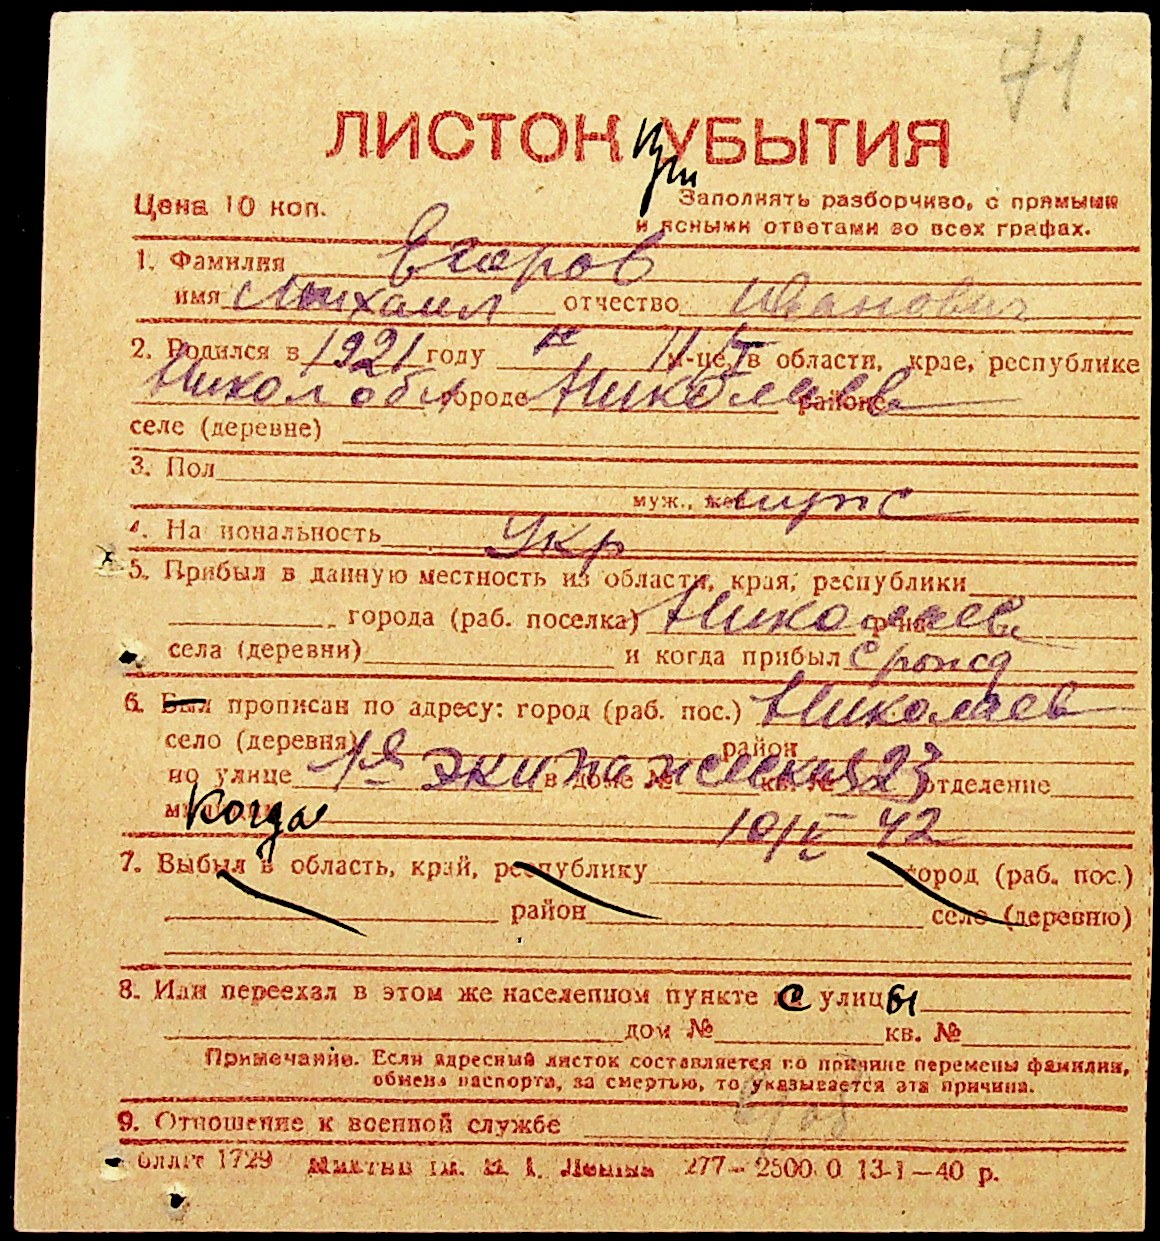 71
ЛИСТОК при УБЫТИЯ
Цена 10 коп.
Заполнять разборчиво, с прямыми
и ясными ответами во всех графах.
1. Фамилия Егоров
имя Михаил отчество Иванович
2. Родился в 1921 году м-це, в области, крае, республике
Никол обл городе Николаев районе
селе (деревне)
3. Пол
муж., жен. муж
4. Национальность Укр
5. Прибыл в данную местность из области, края, республики
города (раб. поселка) Николаев р-на
села (деревни) и когда прибыл с рожд
6. Был прописан по адресу: город (раб. пос.) Николаев
село (деревня) район
по улице 1я экипажеская 23 в доме № кв. № отделение
милиции 42
Когда
7. Выбыл в область, край, республику город (раб. пос.)
район село (деревню)
8. Или переехал в этом же населенном пункте с улицы
дом № кв. №
Примечание. Если адресный листок составляется по причине перемены фамилии,
обмена паспорта, за смертью, то указывается эта причина.
9. Отношение к военной службе
1729 им. Ленина 277—2500.0 13-1—40 р.